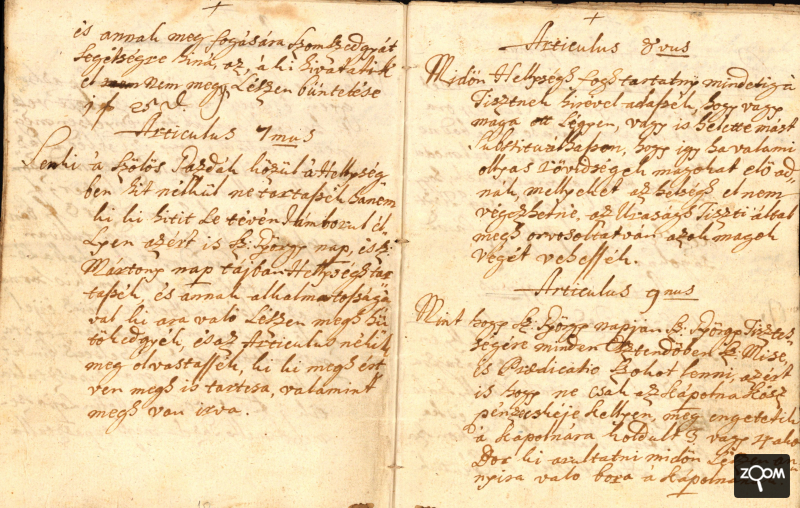 és annak meg fogására szomszedgyát
segétségre hina az, 'a ki hivatatik
el nem megy Lészen büntetése
1 f 25 d.
Articulus 7mus
Senki 'a szölös Gazdák közül 'a Hellység
ben hit nélkül ne tartassék hanem
ki ki hitit Le tévén Jámborul él
lyen azért is Sz: György nap, és Sz:
Mártony nap tájban Hellységh tar
tassék, és annak alkalmatosságá
val ki ara való Lészen megh hü
tökedgyék, és az Articulus nékik
meg olvastassék, ki ki megh ért
vén megh is tartcsa, valamint
megh van irva.
Articulus 8vus
Midön Hellységh fogh tartatny mindetigh 'a
Tisztnek hirével adassék, hogy vagy
maga ott Légyen, vagy is helette mást
Substituálhasson, hogy igy ha valami
ollyas rövidségek magokat elö ad
nák, mellyeket az helségh el nem
végezhetne, az Uraságh Tiszti által
megh orvosoltatván azok magok
végét vehessék.
Articulus 9nus
Mint hogy Sz. György napján Sz. György Tisztes
ségére minden Esztendöben Sz. Mise,
és Praedicatio szokot lenni, azért
is hogy ne csak az kápolna
pénzeskéje kellyen, meg engetetik
'a kápolnára holdult 3 vagy 4 ako
Bor ki arultatni midön
nyira való bora 'a kápolna
ZOOM